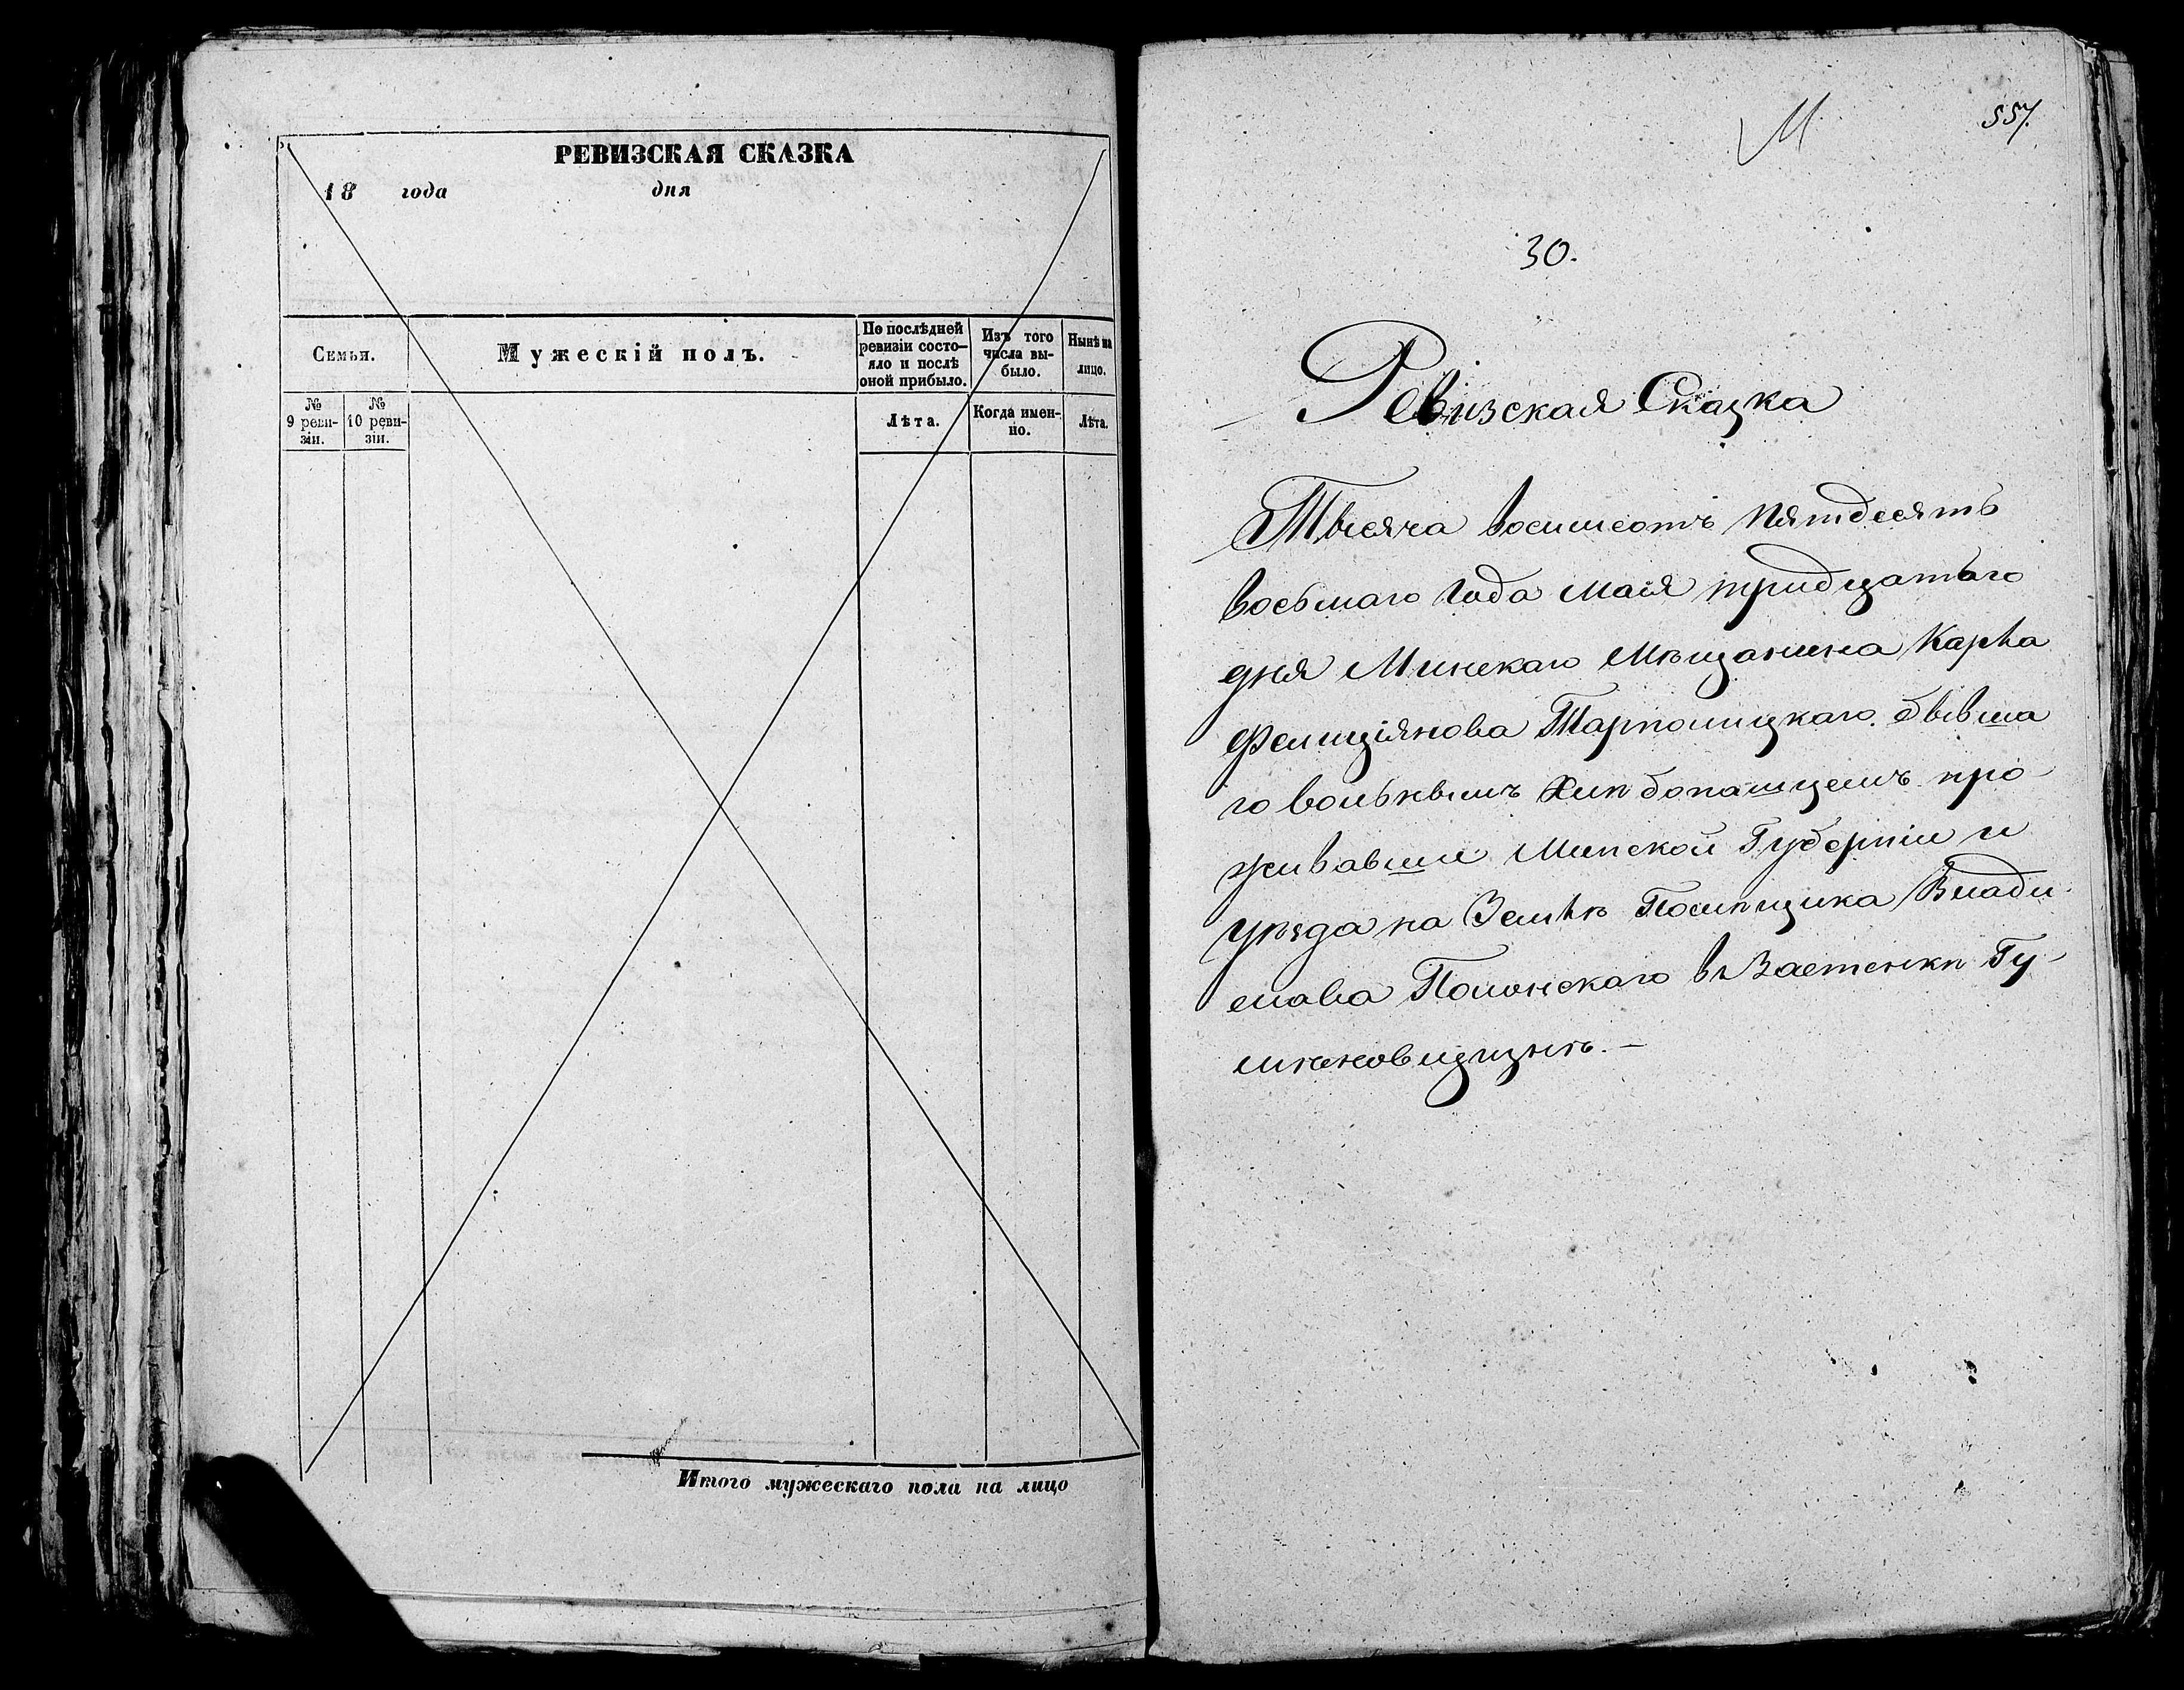 РЕВИЗСКАЯ СКАЗКА
18 года дня
Семья.
Мужескій полъ.
По послѣдней ревизіи состо-
яло и послѣ
оной прибыло.
Изъ того
числа вы-
было.
Нынѣ на
лицо.
№
9 реви-
зіи.
№
10 реви-
зіи.
Лѣта.
Когда имен-
но.
Лѣта.
Итого мужескаго пола на лицо
557.
30.
Ревизская Сказка
Тысяча восимсотъ пятдесятъ
восьмаго года маія тридцатаго
дня Минскаго Мѣщанина Карла
Фелиціянова Тарполицкаго бывша
го вольнымъ хлѣбопашцемъ про-
живавши Минской Губерніи и
уѣзда на Землѣ Помѣщика Влади
слава Полонскаго въ Застенкѣ Гу-